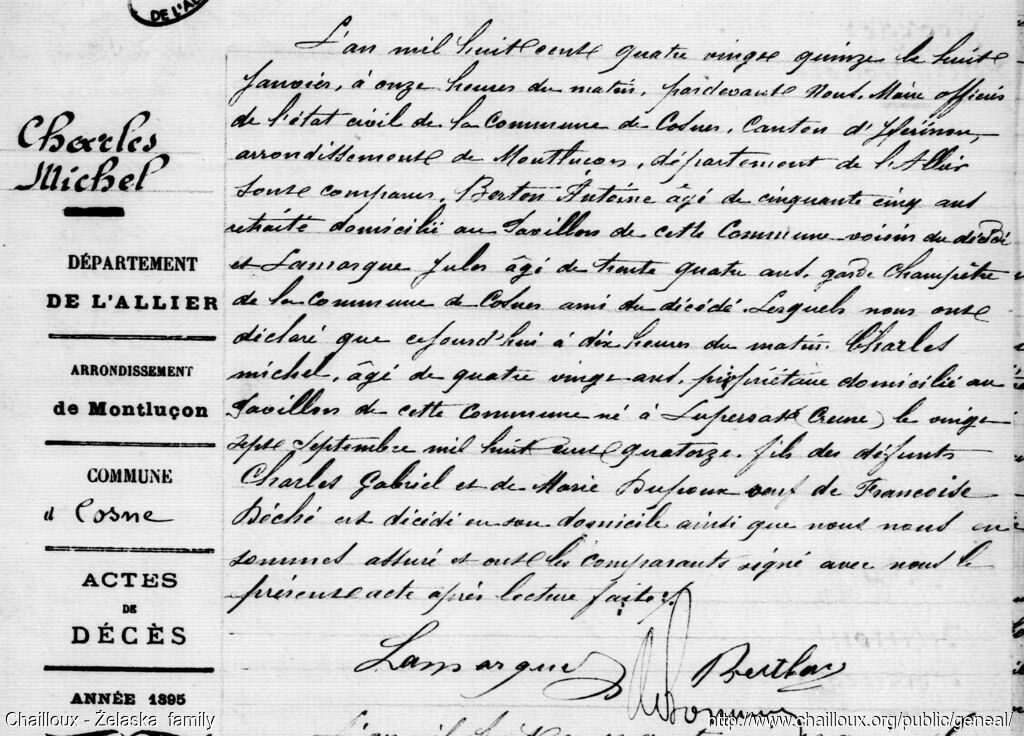 DE L'AL
Charles
Michel
DÉPARTEMENT
DE L'ALLIER
ARRONDISSEMENT
de Montluçon
COMMUNE
d Cosne
ACTES
DE
DÉCÈS
ANNÉE 1895
L'an mil huit cent quatre vingt quinze le huit
Janvier, à onze heures du matin, pardevant Nous, Maire officier
de l'état civil de la Commune de Cosnes, Canton d'Hérisson,
arrondissement de Montluçon, département de l'Allier
sont comparus, Berton Antoine âgé de cinquante cinq ans
retraité domicilié au Pavillon de cette Commune voisin du décédé
et Lamarque Jules âgé de trente quatre ans, garde champêtre
de la Commune de Cosnes ami du décédé. Lesquels nous ont
déclaré que cejourd'hui à dix heures du matin. Charles
michel, âgé de quatre vingt ans, propriétaire domicilié au
Pavillon de cette Commune né à Lupersat (Creuse) le vingt
sept Septembre mil huit cent quatorze. fils des défunts
Charles Gabriel et de Marie Dupoux veuf de Francoise
Béché est décédé en son domicile ainsi que nous nous en
sommes assuré et ont les comparants signé avec nous le
présent acte après lecture faite.
Lamarque Berthon
Chailloux - Żelaska family
http://www.chailloux.org/public/geneal/